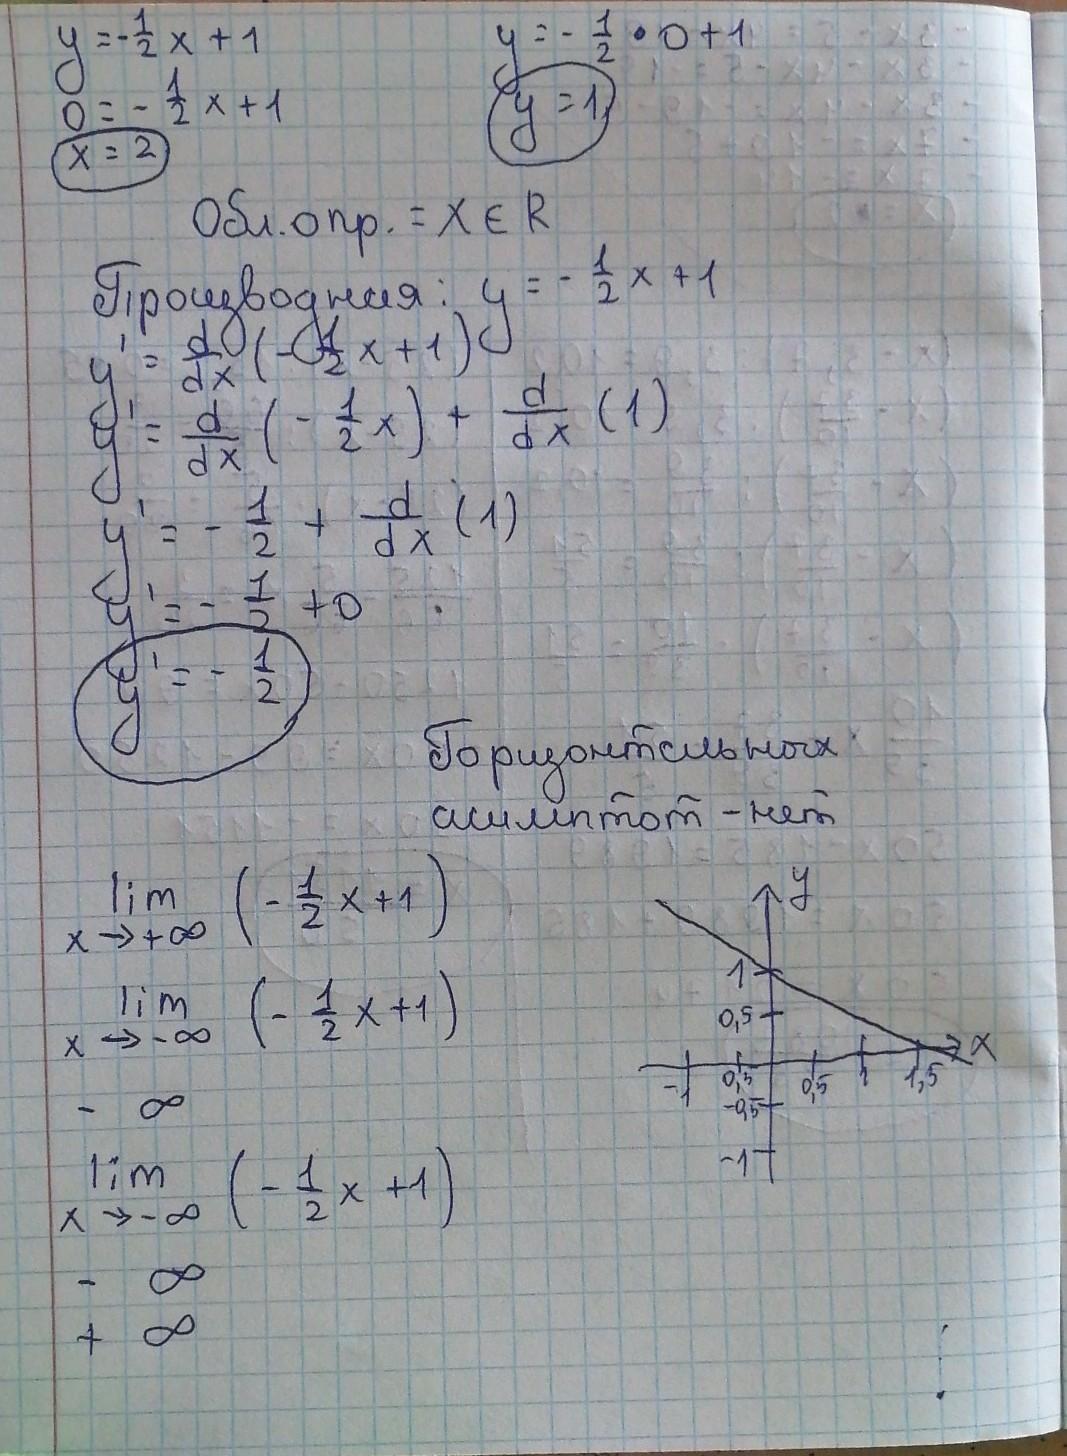 y = -1/2 x + 1
y = -1/2 • 0 + 1
0 = -1/2 x + 1
y = 1
x = 2
Обл. опр. = X ∈ R
Производная: y = -1/2 x + 1
y' = d/dx (-1/2 x + 1)
y' = d/dx (-1/2 x) + d/dx (1)
y' = -1/2 + d/dx (1)
y' = -1/2 + 0
y' = -1/2
Горизонтальных
асимптот - нет
lim x→+∞ (-1/2 x + 1)
lim x→-∞ (-1/2 x + 1)
- ∞
lim x→-∞ (-1/2 x + 1)
- ∞
+ ∞
y
1
0,5
x
-1 0,5 0,5 1 1,5
-0,5
-1